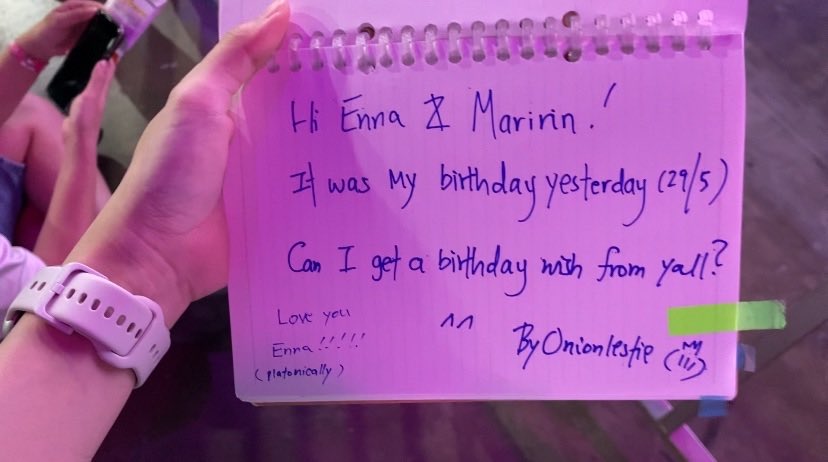 Hi Enna & Maririn!
It was My birthday yesterday (29/5)
Can I get a birthday wish from yall?
^^
Love you
Enna!!!!!
(platonically)
By Onionlestie